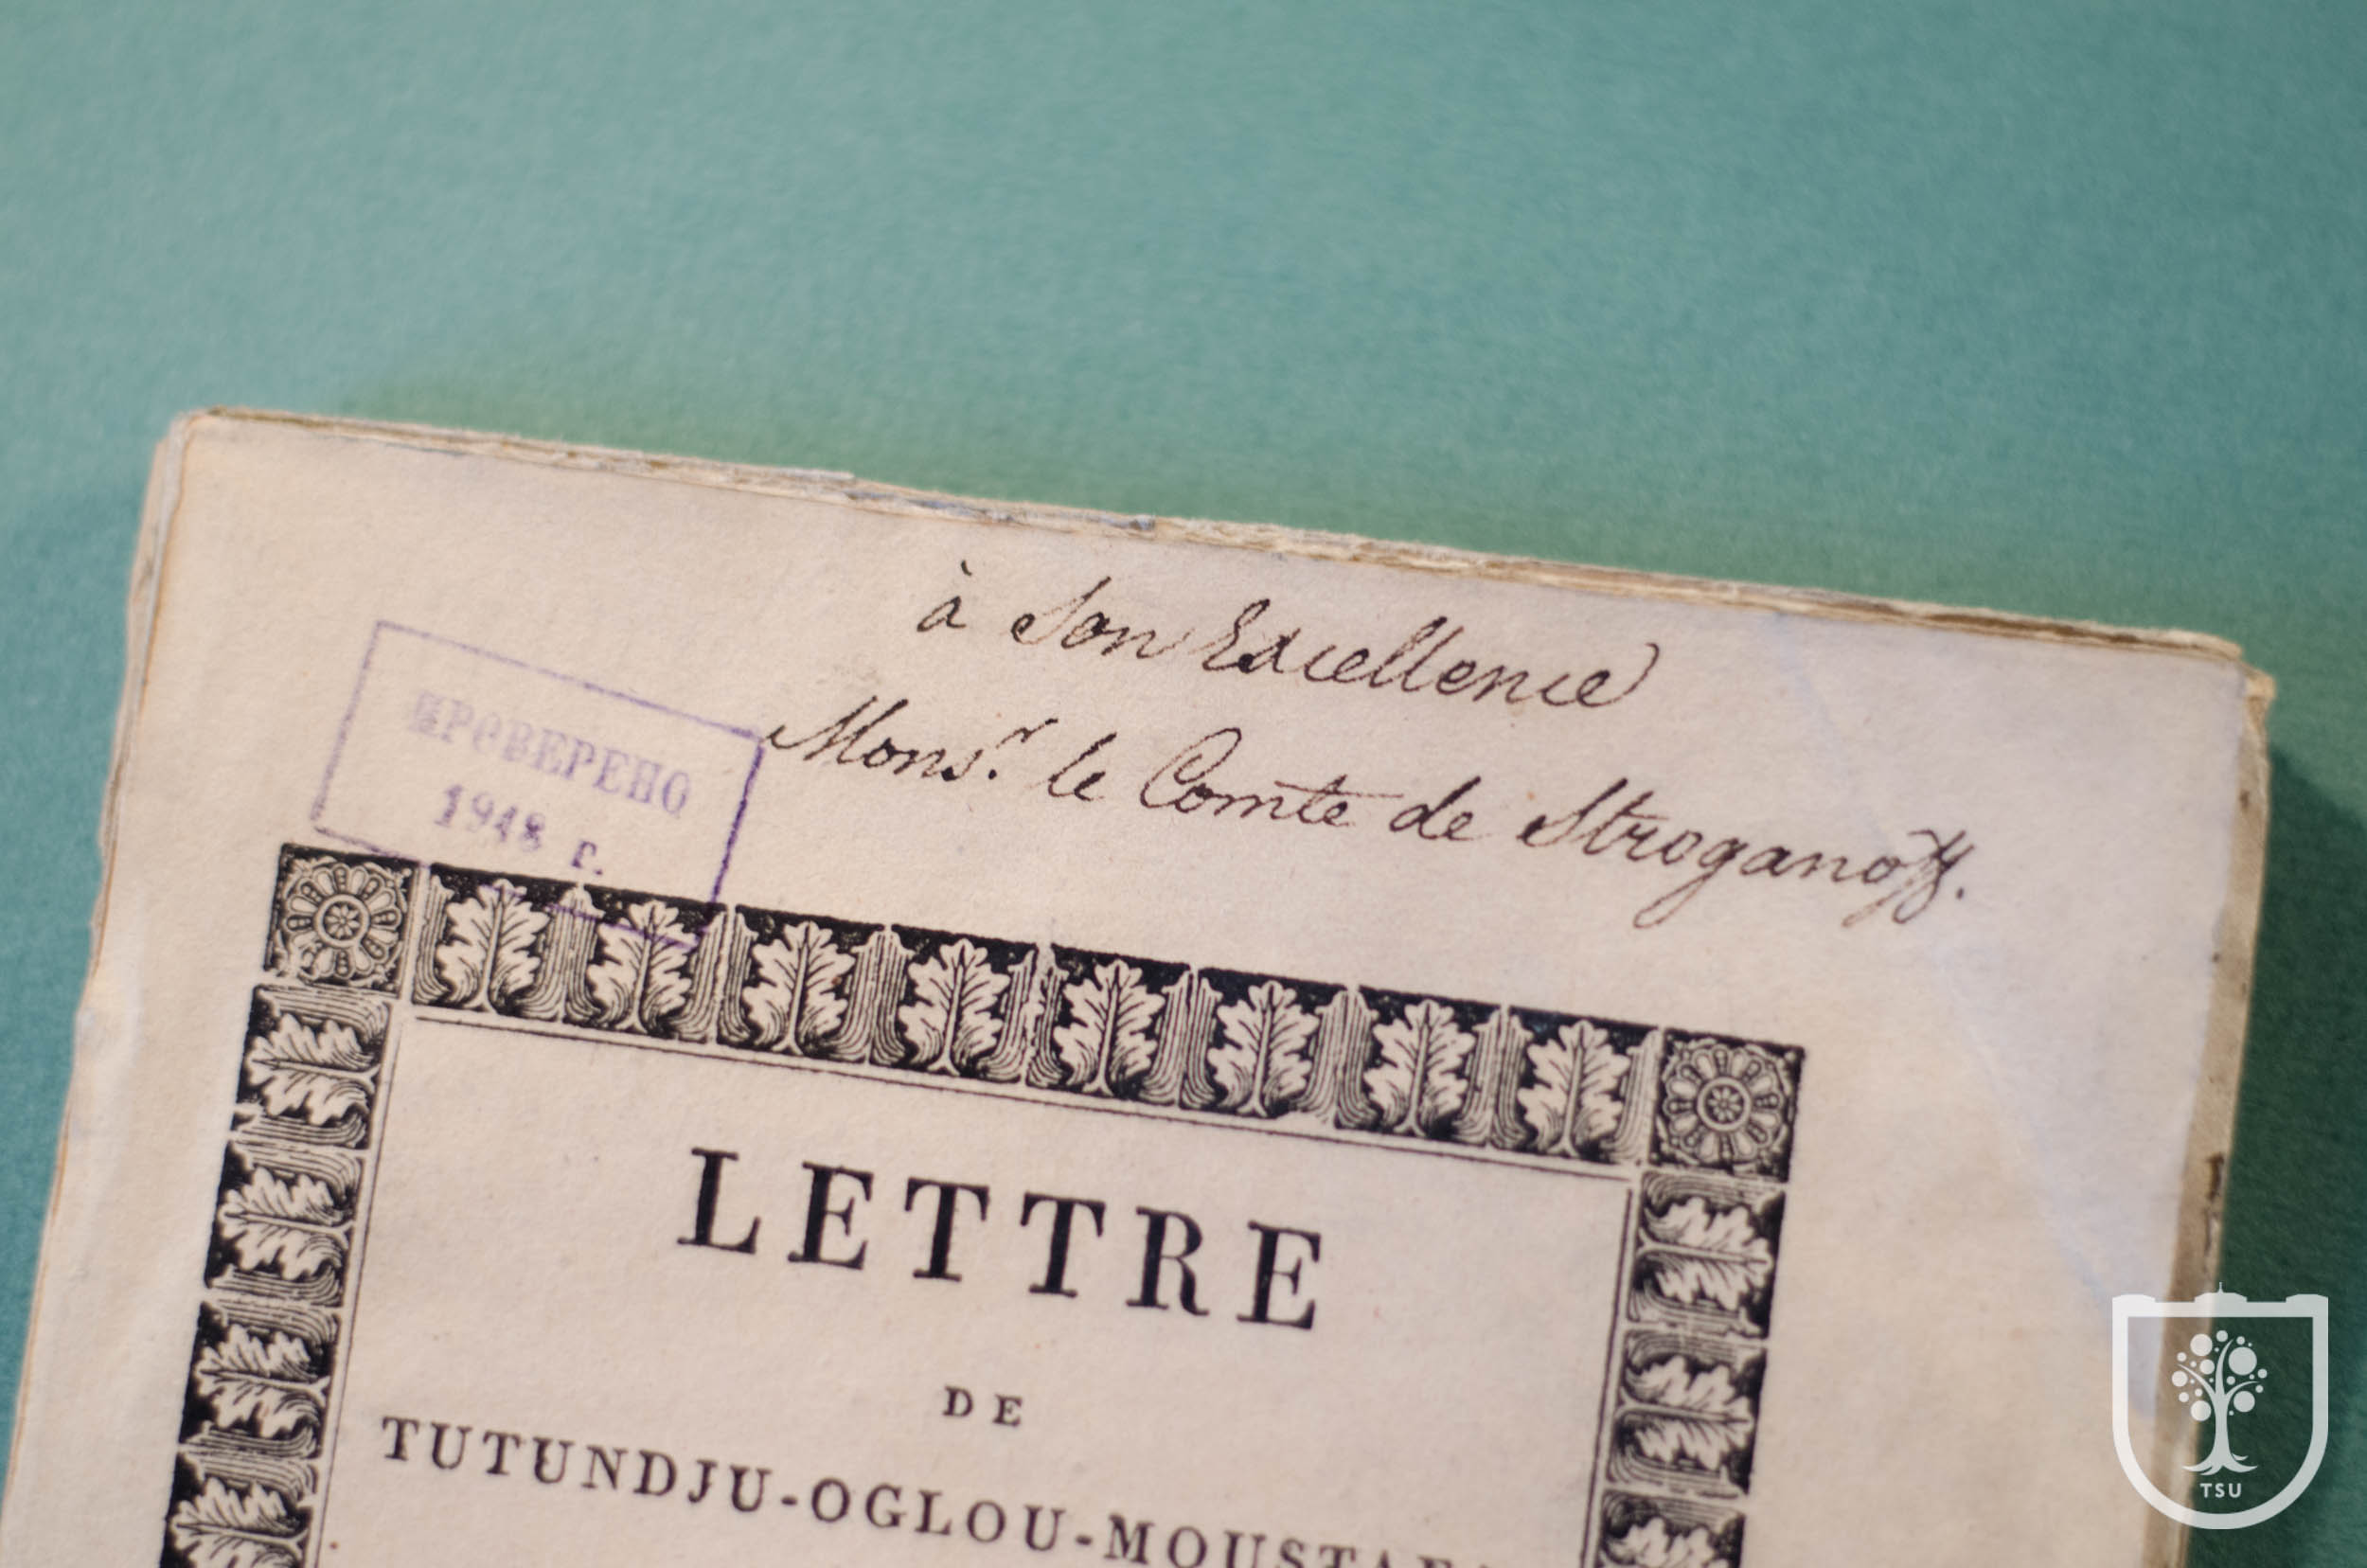 à Son Excellence
Mons.r le Comte de Stroganoff.
ПРОВЕРЕНО
1948 г.
LETTRE
DE
TUTUNDJU-OGLOU-MOUSTAFA
TSU